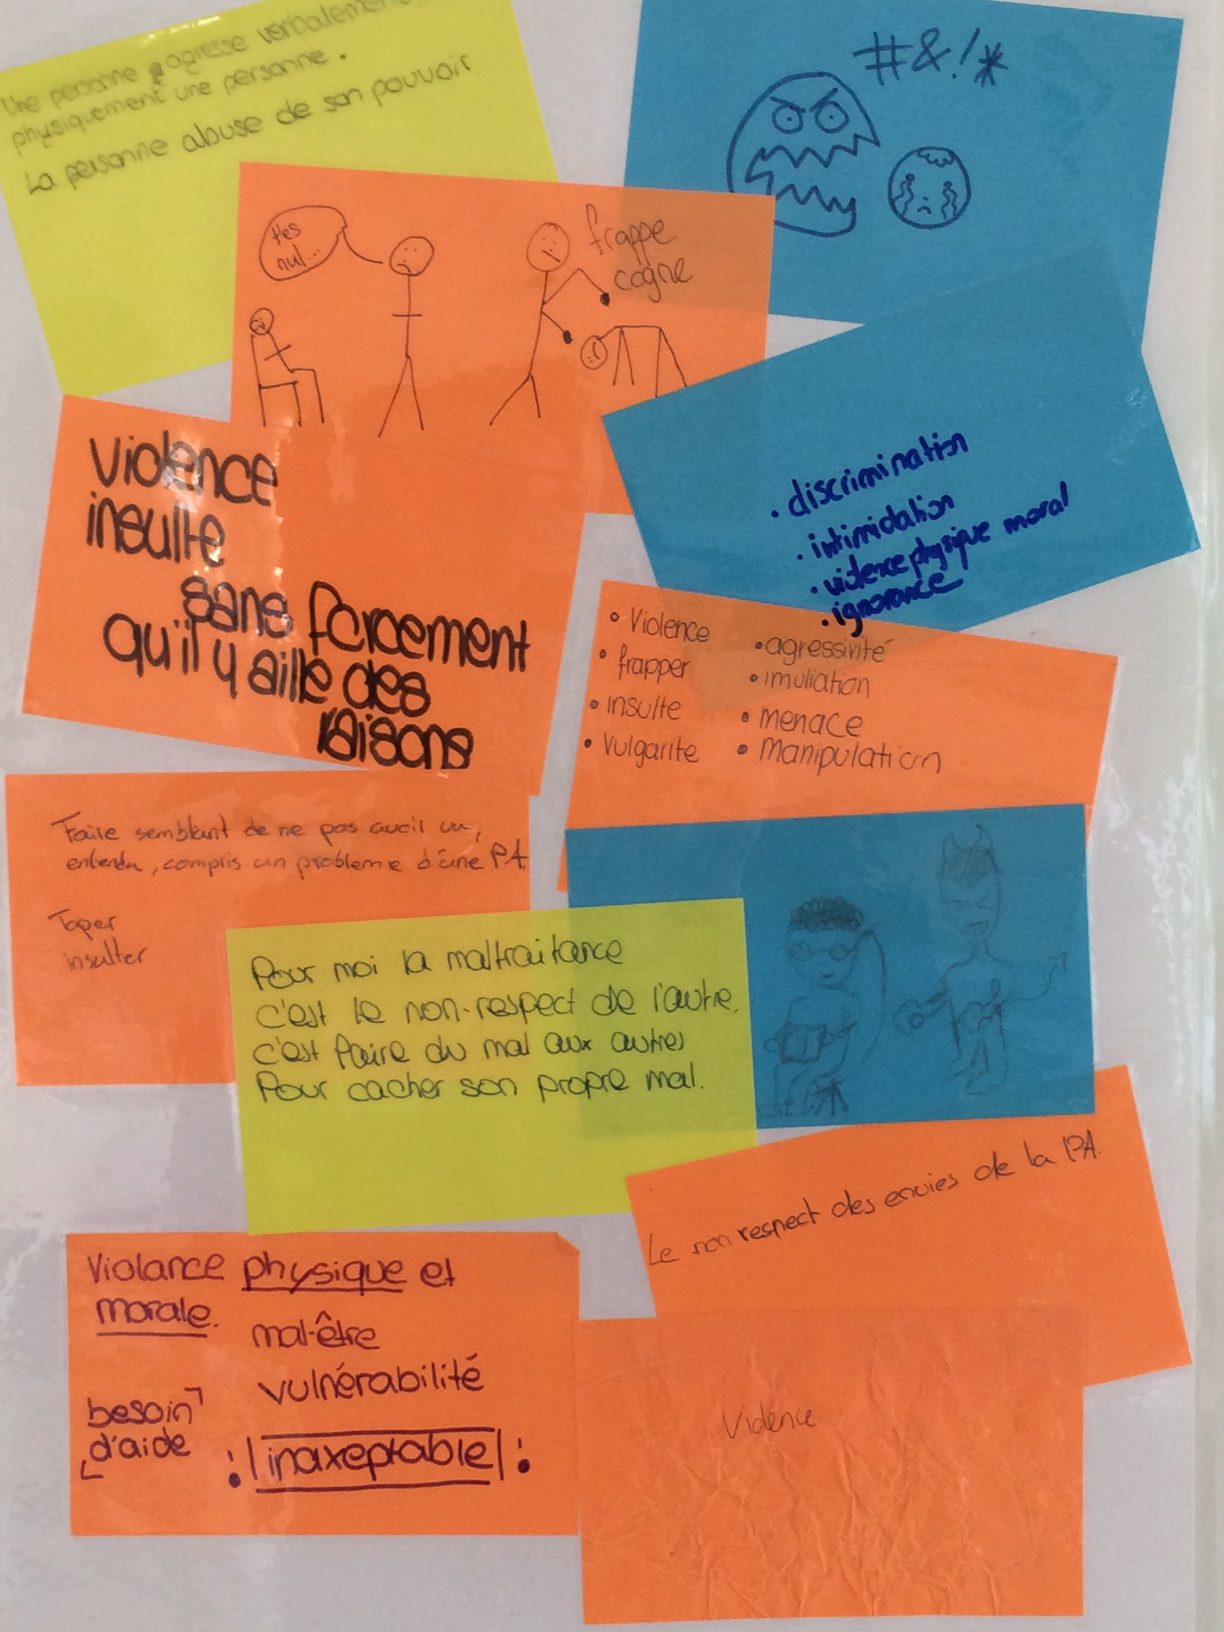 Une personne agresse verbalement
physiquement une personne.
La personne abuse de son pouvoir
#&!*
t'es
nul...
frappe
cogne
Violence
insulte
sans forcement
qu'il y aille des
raisons
. discrimination
. intimidation
. violence physique moral
. ignorance
• Violence
• frapper
• insulte
• Vulgarite
• agressivité
• imuliation
• menace
• manipulation
Faire semblant de ne pas avoir vu,
entendu, compris un probleme d'une PA.
Taper
insulter
Pour moi la maltraitance
c'est le non-respect de l'autre.
c'est faire du mal aux autres
Pour cacher son propre mal.
Le non respect des envies de la PA.
Violance physique et
morale.
mal-être
vulnérabilité
besoin
d'aide
inaxeptable
Violence